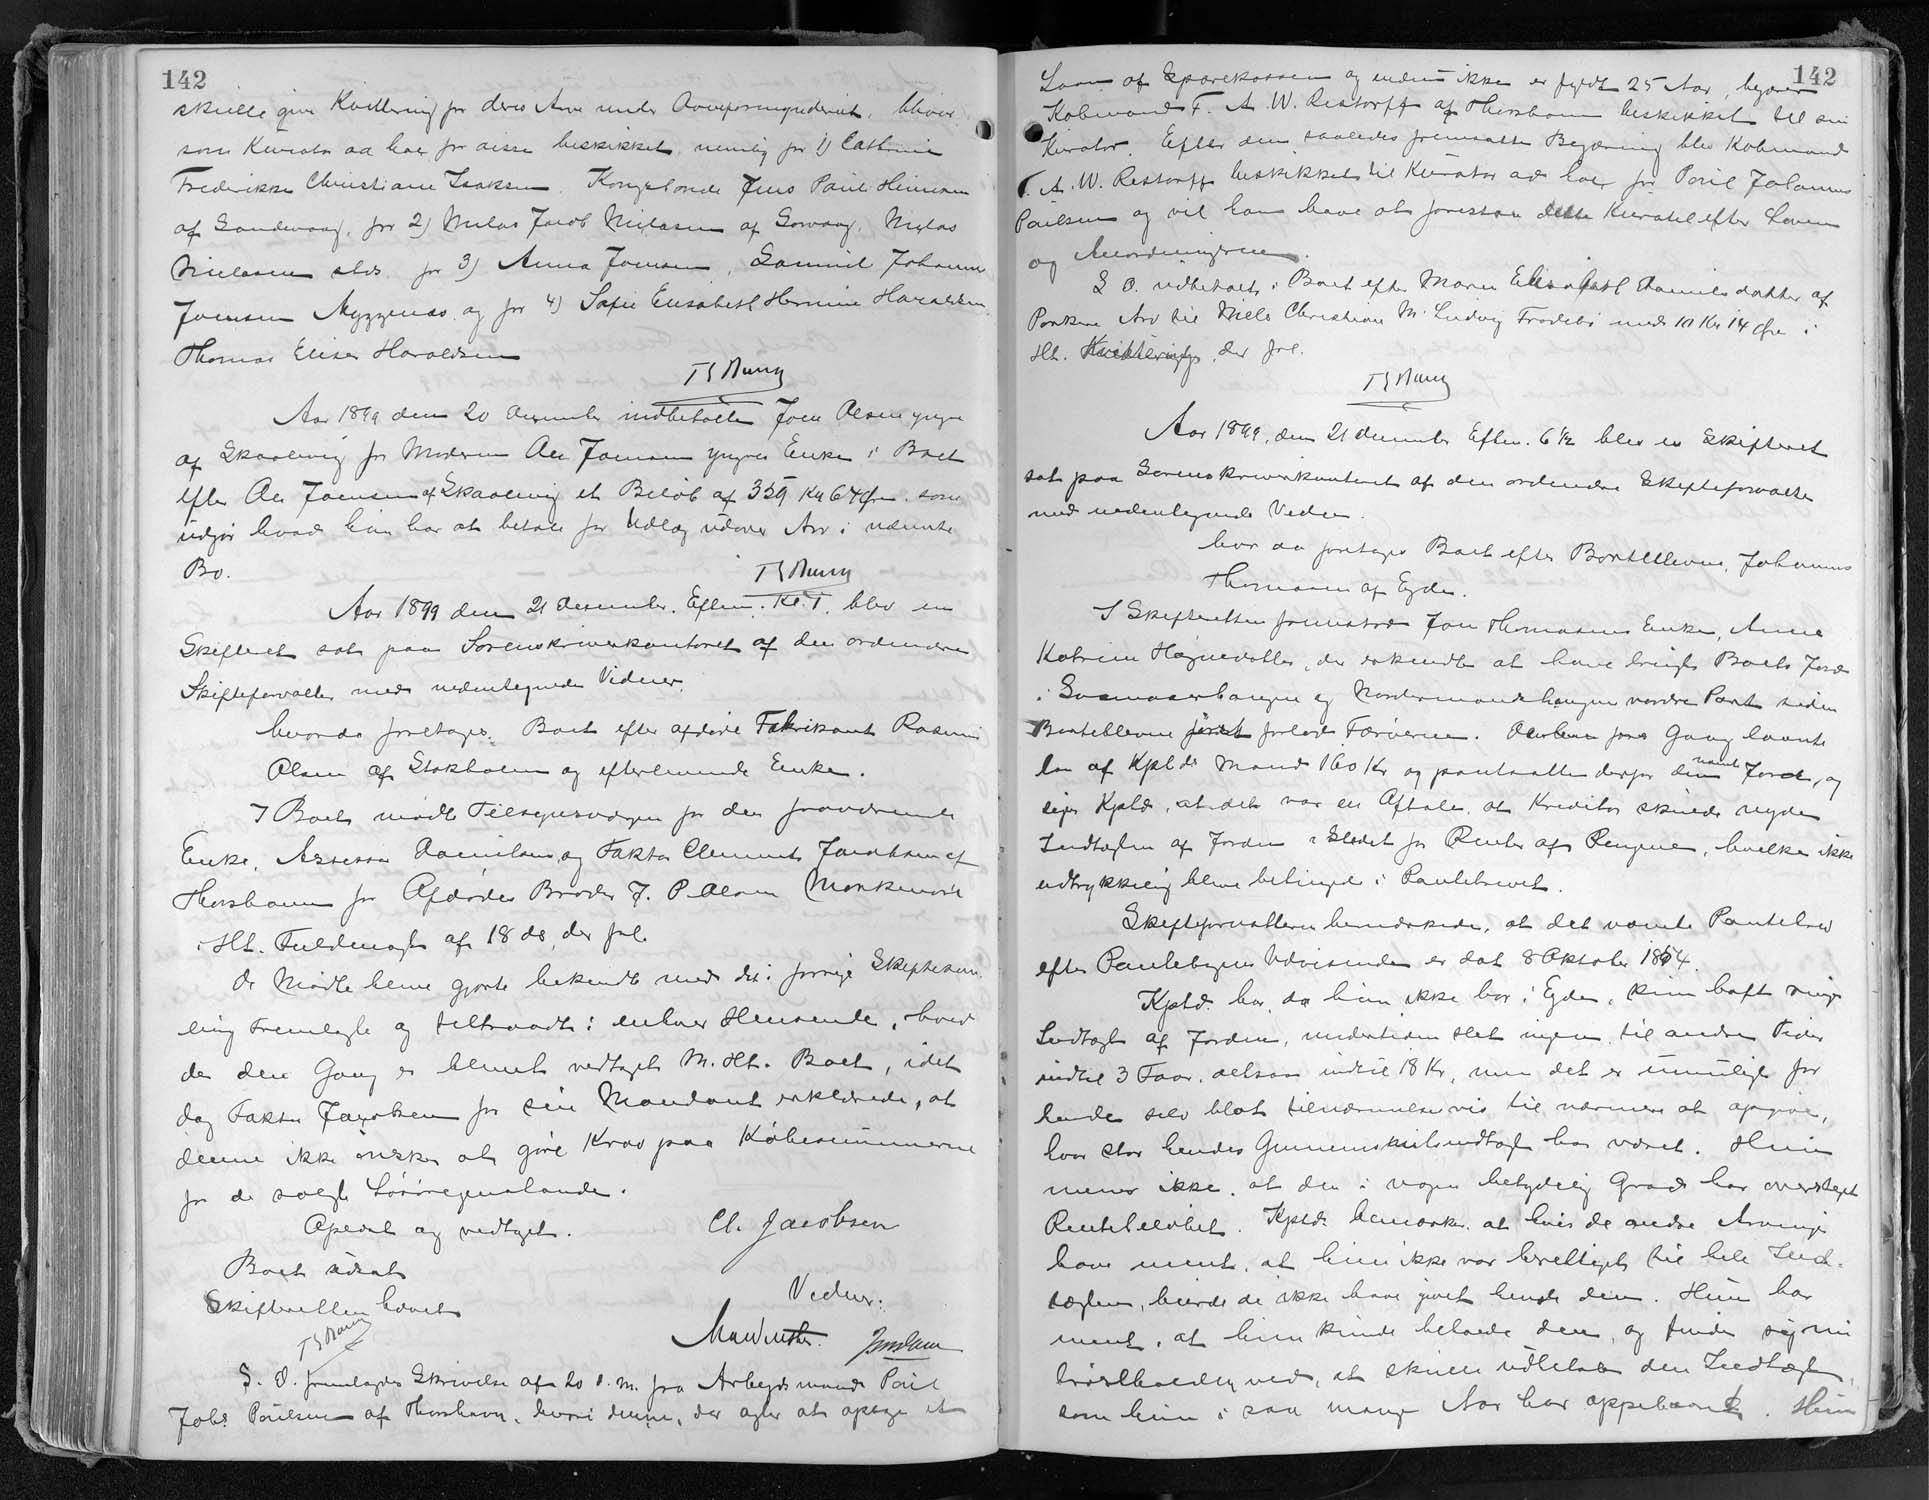 142
skulle give Kvittering for deres Arv under Overformynderiet, bliver
som Kurator ad hoc for disse beskikket nemlig for 1) Cathrine
Frederikke Christiane Isaksen, Kongsbonde Jens Paul Heinesen
af Sandevaag, for 2) Niclas Jacob Niclasen af Sorvaag, Niclas
Niclasen sts. for 3) Anna Joensen, Samuel Johannes
Joensen Myggenæs og for 4) Sofie Elisabeth Hermine Haraldsen
Thomas Elias Haraldsen
Aar 1899 den 20 December indbetalte Joen Olsen yngre
af Skaalevig for Moderen Ole Joensen yngres Enke i Boet
efter Ole Joensen af Skaalevig et Beløb af 359 Kr 64 Øre som
udgør hvad hun har at betale for Udlæg udover Arv i nævnte
Bo.
Aar 1899 den 21 December, Efterm. Kl. 1. blev en
Skifteret sat paa Sorenskriverkontoret af den ordinære
Skifteforvalter med undertegnede Vidner,
hvorda foretages Boet efter afdøde Fabrikant Rasmus
Olsen af Stokholm og efterlevende Enke.
I Boet mødte Tilsynsværgen for den fraværende
Enke, Assessor Danielsen og Faktor Clement Jacobsen af
Thorshavn for Afdødes Broder J. P. Olsen
i Hht. Fuldmagt af 18 ds, der frl.
De Mødte bleve gjorte bekendt med det i forrige Skiftesam-
ling Fremlagte og tiltraadte i enhver Henseende, hvad
der den Gang er blevet vedtaget m. Ht. Boet, idet
dog Faktor Jacobsen for sin Mandant erklærede, at
denne ikke ønsker at gøre Krav paa Købesummerne
for de solgte Løsøregenstande.
Oplæst og vedtaget. Cl. Jacobsen
Boet udsat
Skifteretten hævet
Vidner:
S. D. fremlagdes Skrivelse af 20 d. M. fra Arbejdsmand Poul
Johs Poulsen af Thorshavn, hvori denne, der agter at optage et
142
Laan af Sparekassen og endnu ikke er fyldt 25 Aar, begærer
Købmand F. A. W. Restorff af Thorshavn beskikket til sin
Kurator. Efter den saaledes fremsatte Begæring blev Købmand
F. A. W. Restorff beskikket til Kurator ad hoc for Poul Johannes
Poulsen og vil han have at forestaa dette Kuratel efter Loven
og Anordningerne.
S. D. udbetaltes i Boet efter Maren Elisabeth Danielsdatter af
Porkere Arv til Niels Christian M. Ludvig Trodebø med 10 Kr 14 Øre i
Ht. Kvittering, der frl.
Aar 1899, den 21 December Efterm. 6½ blev en Skifteret
sat paa Sorenskriverkontoret af den ordinære Skifteforvalter
med undertegnede Vidner.
hvor da foretages Boet efter Bortblevne, Johannes
Thomasen af Ejde.
I Skifteretten fremstod Jon Thomasens Enke, Anne
Katrine Høgnedatter, der erkendte at have brugt Boets Jord
i og Nordermandshaugen nordre Part siden
Bortblevne først forlod Færøerne. Denne Gang laante
han af Kptds Mand 160 Kr og pantsatte derfor den nævnte Jord, og
siger Kptd, at det var en Aftale, at Kreditor skulde nyde
Indtægten af Jorden i Stedet for Renter af Pengene, hvilke ikke
udtrykkelig bleve betingede i Pantebrevet.
Skifteforvalteren bemærkede, at det nævnte Pantebrev
efter Pantebogens Udvisende er dat 8 Oktober 1854.
Kptd. har, da hun ikke bor i Ejde, kun haft ringe
Indtægt af Jorden, undertiden slet ingen, til andre Tider
indtil 3 Faar, altsaa indtil 18 Kr, men det er umuligt for
hende selv blot tilnærmelsesvis til nærmere at opgive,
hvor stor hendes Gennemsnitsindtægt har været. Hun
mener ikke, at den i nogen betydelig Grad har oversteget
Rentebeløbet. Kptd. bemærker, at hvis de andre Arvinger
have ment, at hun ikke var berettiget til hele Ind-
tægten, burde de ikke have givet hende den. Hun har
ment, at hun kunde beholde den, og finder sig nu
brøstholden ved, at skulle udbetale den Indtægt,
som hun i saa mange Aar har oppebaaret. Hun